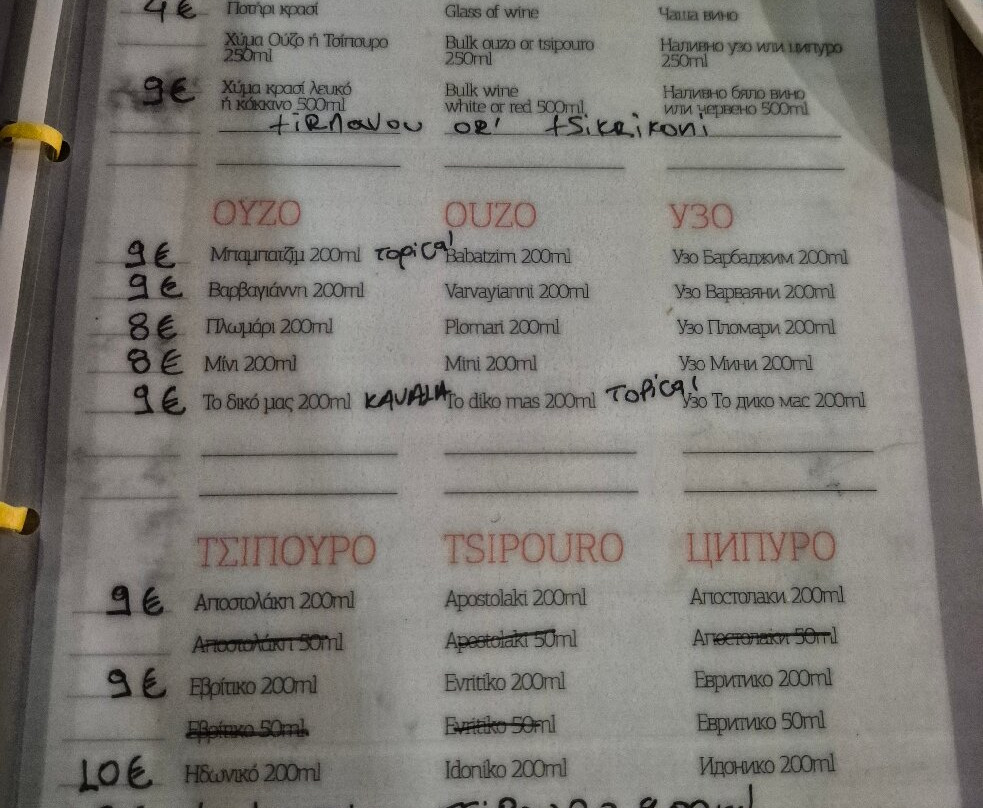 4€ Ποτήρι κρασί Glass of wine Чаша вино
Χύμα Ούζο ή Τσίπουρο Bulk ouzo or tsipouro Наливно узо или ципуро
250ml 250ml 250ml
9€ Χύμα κρασί λευκό Bulk wine Наливно бяло вино
ή κόκκινο 500ml white or red 500ml или червено 500ml
tiRnavou or' tsikrikoni
ΟΥΖΟ OUZO УЗО
9€ Μπαμπατζίμ 200ml Topica! Babatzim 200ml Узо Барбаджим 200ml
9€ Βαρβαγιάννη 200ml Varvayianni 200ml Узо Варваяни 200ml
8€ Πλωμάρι 200ml Plomari 200ml Узо Пломари 200ml
8€ Μίνι 200ml Mini 200ml Узо Мини 200ml
9€ Το δικό μας 200ml KAVALA To diko mas 200ml Topica! Узо То дико мас 200ml
ΤΣΙΠΟΥΡΟ TSIPOURO ЦИПУРО
9€ Αποστολάκη 200ml Apostolaki 200ml Апостолаки 200ml
Αποστολάκη 50ml Apostolaki 50ml Апостолаки 50ml
9€ Εβρίτικο 200ml Evritiko 200ml Евритико 200ml
Εβρίτικο 50ml Evritiko 50ml Евритико 50ml
10€ Ηδωνικό 200ml Idoniko 200ml Идонико 200ml